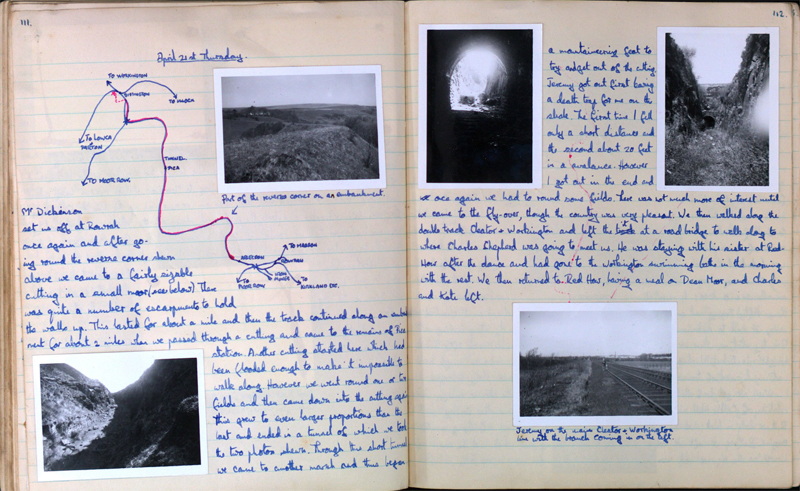 111.
April 21st Thursday.
TO WORKINGTON
DISTINGTON
TO LOWCA
TO MOOR ROW
Part of the reverse corner on an embankment.
Mr Dickinson
set us off at Rowrah
once again and after go-
ing round the reverse corner shewn
above we came to a fairly sizable
cutting in a small moor (see below) There
was quite a number of escarpments to hold
the walls up. This lasted for about a mile and then the track continued along an embank
ment for about 2 miles when we passed through a cutting and came to the remains of
station. Another cutting started here which had
been flooded enough to make it impossible to
walk along. However we went round one or two
fields and then came down into the cutting again
This grew to even larger proportions than the
last and ended in a tunnel of which we took
the two photos shewn. Through this short tunnel
we came to another marsh and thus began
112.
a mountaineering feat to
try and get out of the cutting
Jeremy got out first leaving
a death trap for me on the
shale. The first time I fell
only a short distance and
the second about 20 feet
in a avalance. However
I got out in the end and
we once again we had to round some fields. There was not much more of interest until
we came to the fly-over, though the country was very pleasant. We then walked along the
double track Cleator & Workington and left the at a road bridge to walk along to
where Charles Shepherd was going to meet us. He was staying with his sister at Red
How after the dance and had gone to the Workington swimming baths in the morning
with the rest. We then returned to Red How, having a meal on Dean Moor, and Charles
and Kate left.
Jeremy on the main Cleator & Workington
line with the branch coming in on the left.